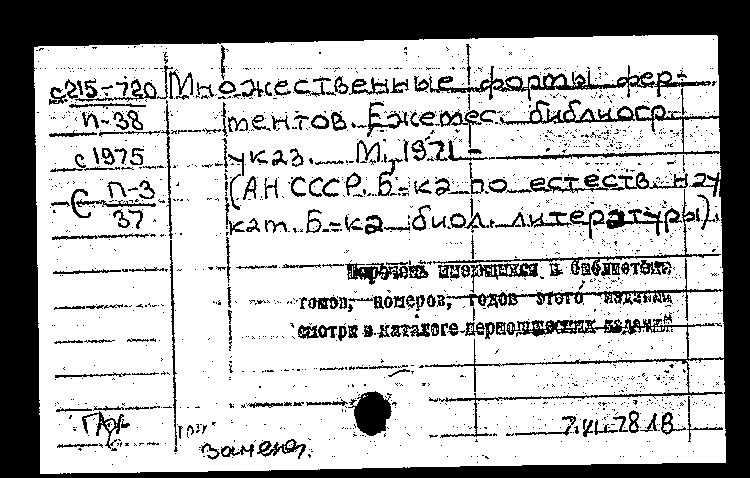 с215-720 Множественные формы фер-
П-38 ментов. Ежемес. библиогр.
с 1975 указ. М., 1971 -
С П-3 (АН СССР. Б-ка по естеств. нау
37 кат. Б-ка биол. литературы).
Перечень имеющихся в библиотеке
томов, номеров, годов этого издания
смотри в каталоге периодических изданий
7.VI.78 18
Замене.